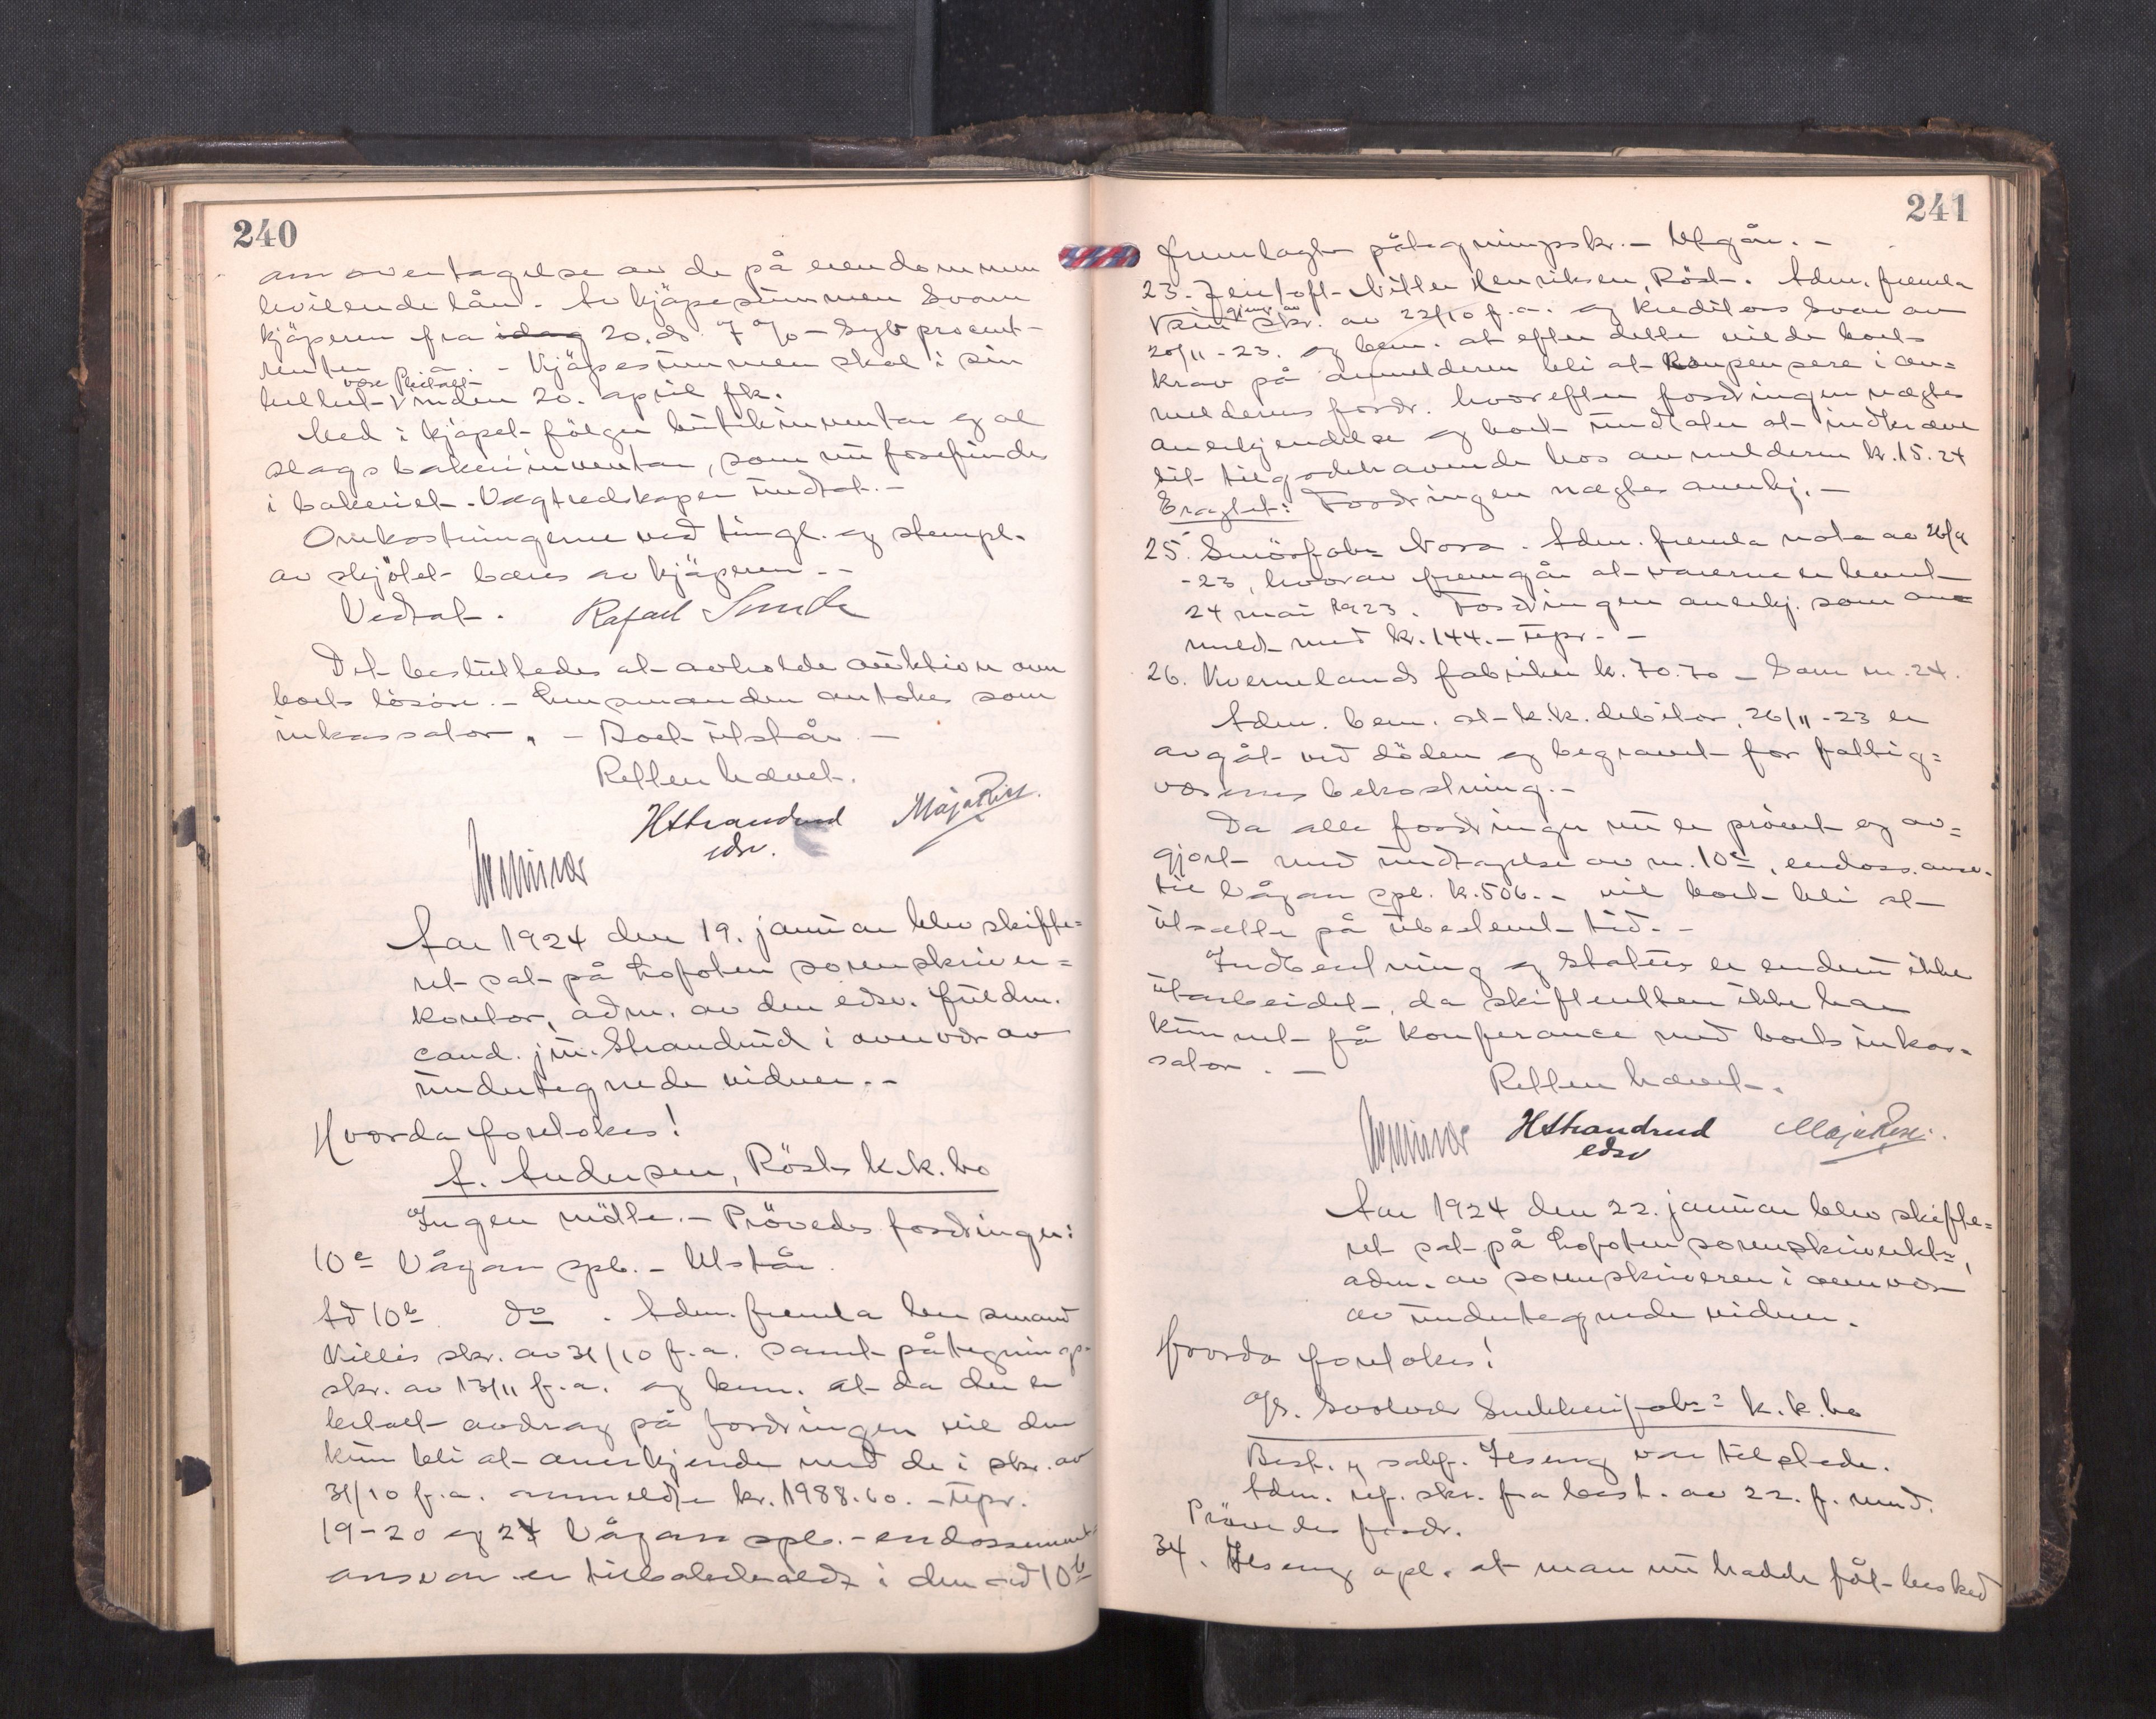 240
om overtagelse av de på eiendommen
hvilende lån. Av kjøpesummen svarer
kjøperen fra idag 20. ds. 7 % - syv procent -
rente p. a. - Kjøpesummen skal i sin
helhet være betalt inden 20. april fk.
Med i kjøpet følger butikinventar og al
slags bakeriinventar, som nu forefindes
i bakeriet. Vegtredskaper undtat. -
Omkostningerne ved tingl. og stempl.
av skjøtet bæres av kjøperen. -
Vedtat. Rafael
Det besluttedes at avholde auktion over
boets løsøre. - Lensmanden antokes som
inkassator. - Boet utstår. -
Retten hævet.
HStrandrud
edsv.
Maja
Aar 1924 den 19. januar blev skifte=
ret sat på Lofoten sorenskriver=
kontor, adm. av den edsv. fuldm.
cand. jur. Strandrud i overvær av
undertegnede vidner. -
Hvorda foretokes!
A. Andersen, Røst k.k.bo
Ingen møtte. - Prøvedes fordringer:
10c Vågan spb. - Utstår.
Ad 10b do . Adm. fremla lensmand
Killis skr. av 31/10 f.a. samt påtegnings-
skr. av 13/11 f.a. og bem. at da der er
betalt avdrag på fordringen vil den
kun bli at anerkjende med de i skr. av
31/10 f.a. anmeldte kr. 1988.60. - upr.
19-20 og 24 Vågan spb. - endossements
ansvar er tilbakekaldt i den ad 10b
241
fremlagte påtegningsskr. - Utgår. -
23. Zentoft-Nitter Henriksen, Røst. Adm. fremla
gjenp. av sin skr. av 22/10 f.a. og kreditors svar av
20/11-23. og bem. at efter dette vil de boets
krav på anmelderen bli at kompensere i an=
melderens fordr. hvorefter fordringen nægtes
anerkjendelse og boet undlater at indkræve
sit tilgodehavende hos anmelderen kr. 15.24
Eragtet: Fordringen nægtes anerkj. -
25. Smørfabr. Nora. Adm. fremla nota av 26/9
-23, hvorav fremgår at varerne er levert
24 mai 1923. Fordringen anerkj. som an=
meldt med kr. 144. - upr. -
26. Kvernelands fabriker k. 70.70 - Som nr. 24.
Adm. bem. at k.k. debitor, 26/11-23 er
avgåt ved døden og begravet for fattig=
væsenets bekostning. -
Da alle fordringer nu er prøvet og av=
gjort med undtagelse av nr. 10c, endoss. ansv.
til Vågan spb. k. 506. - vil boet bli at
utsætte på ubestemt tid. -
Indberetning og status er endnu ikke
utarbeidet, da skifteretten ikke har
kunnet få konferance med boets inkas=
sator. -
Retten hævet.
HStrandrud
edsv
Maja
Aar 1924 den 22. januar blev skifte=
ret sat på Lofoten sorenskriverkt=,
adm. av sorenskriveren i overvær
av undertegnede vidner.
Hvorda foretokes!
A/S. Svolvær Snekkerifabr= k.k.bo
Best. og sakf. Jeseng var tilstede.
Adm. ref. skr. fra best. av 22. f. mnd.
Prøvedes fordr.
34. Jeseng opl. at man nu hadde fåt besked